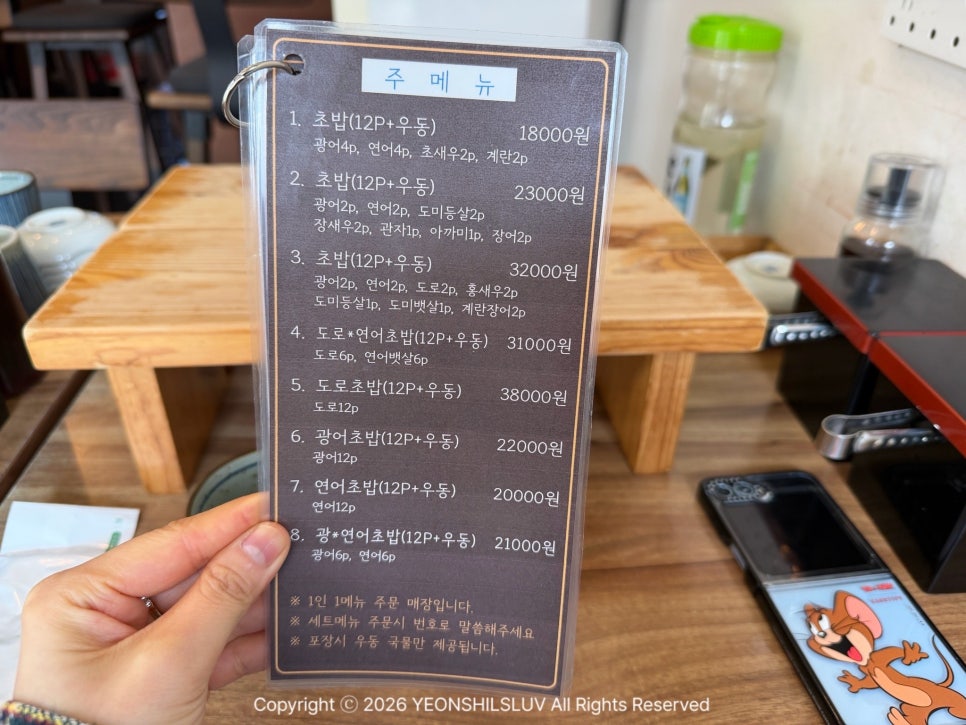 주 메 뉴
1. 초밥(12P+우동) 18000원
광어4p, 연어4p, 초새우2p, 계란2p
2. 초밥(12P+우동) 23000원
광어2p, 연어2p, 도미등살2p
장새우2p, 관자1p, 아까미1p, 장어2p
3. 초밥(12P+우동) 32000원
광어2p, 연어2p, 도로2p, 홍새우2p
도미등살1p, 도미뱃살1p, 계란장어2p
4. 도로*연어초밥(12P+우동) 31000원
도로6p, 연어뱃살6p
5. 도로초밥(12P+우동) 38000원
도로12p
6. 광어초밥(12P+우동) 22000원
광어12p
7. 연어초밥(12P+우동) 20000원
연어12p
8. 광*연어초밥(12P+우동) 21000원
광어6p, 연어6p
※ 1인 1메뉴 주문 매장입니다.
※ 세트메뉴 주문시 번호로 말씀해주세요
※ 포장시 우동 국물만 제공됩니다.
Copyright ⓒ 2026 YEONSHILSLUV All Rights Reserved